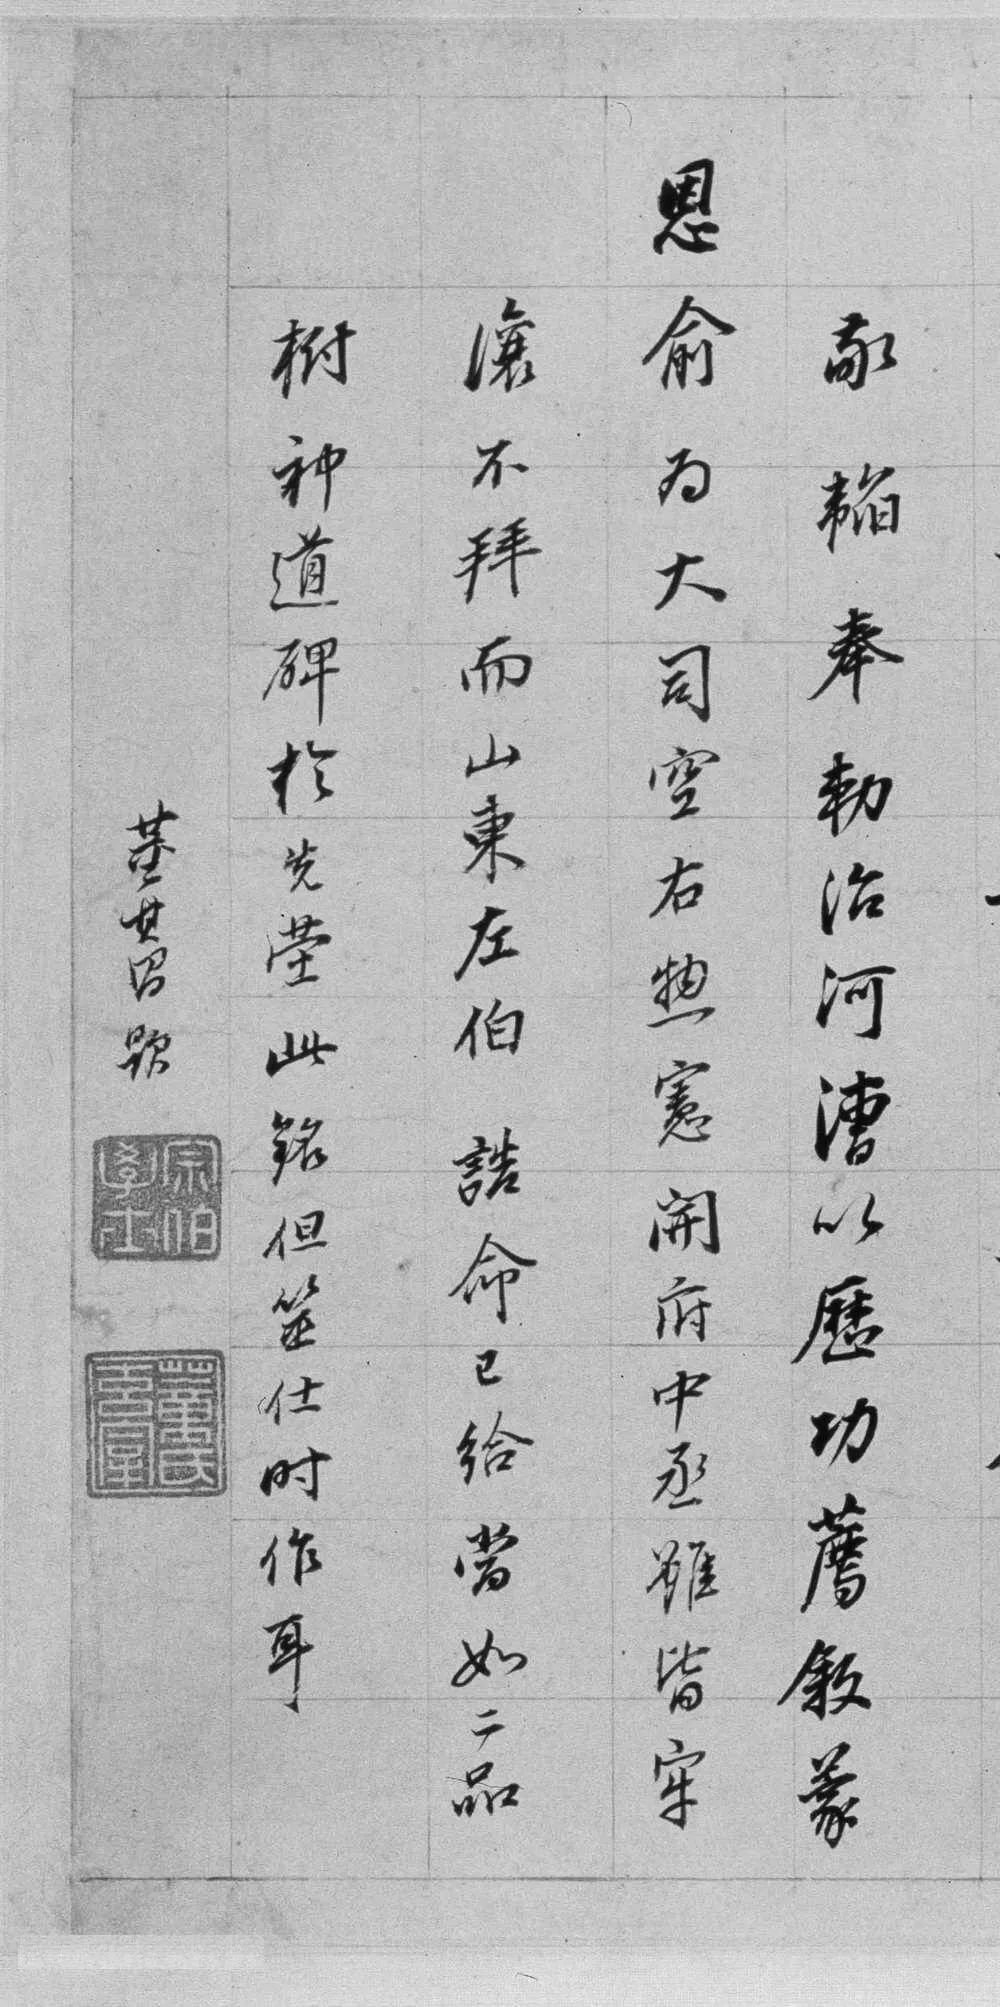 敬韜奉勑治河漕以歷功薦叙蒙
恩俞为大司空右惣憲開府中丞雖皆牢
讓不拜而山東左伯誥命已给當如二品
樹神道碑於先塋此銘但筮仕时作耳
董其昌題
宗伯學士